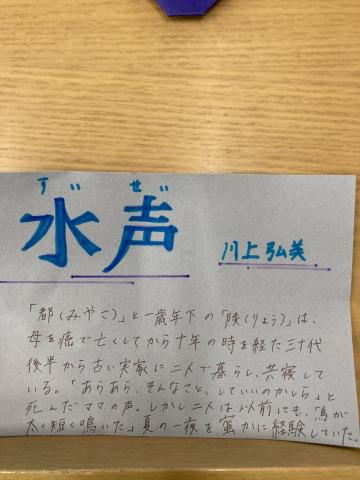 すいせい
水声
川上弘美
「都(みやこ)」と一歳年下の「陵(りょう)」は、
母を癌で亡くしてから十年の時を経た三十代
後半から古い実家に二人で暮らし、共寝して
いる。「あらあら、そんなこと、していいのかしら」と
死んだママの声。しかし二人は以前にも、「鳥が
太く短く鳴いた」夏の一夜を蜜かに経験していた。